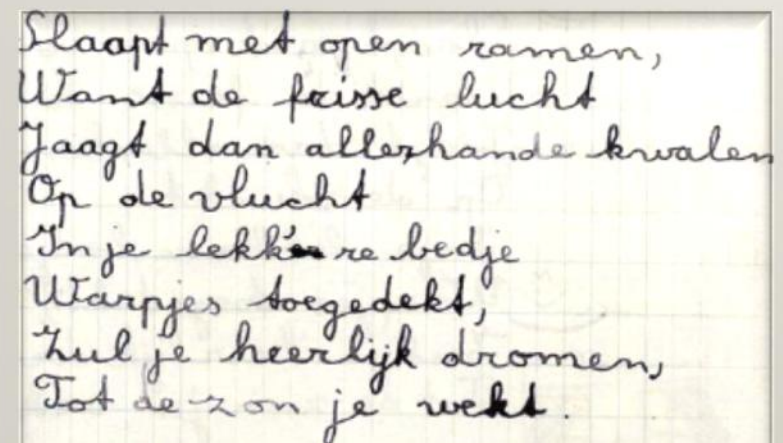 Slaapt met open ramen,
Want de frisse lucht
Jaagt dan allerhande kwalen
Op de vlucht
In je lekk're bedje
Warpjes toegedekt,
Zul je heerlijk dromen,
Tot de zon je wekt.